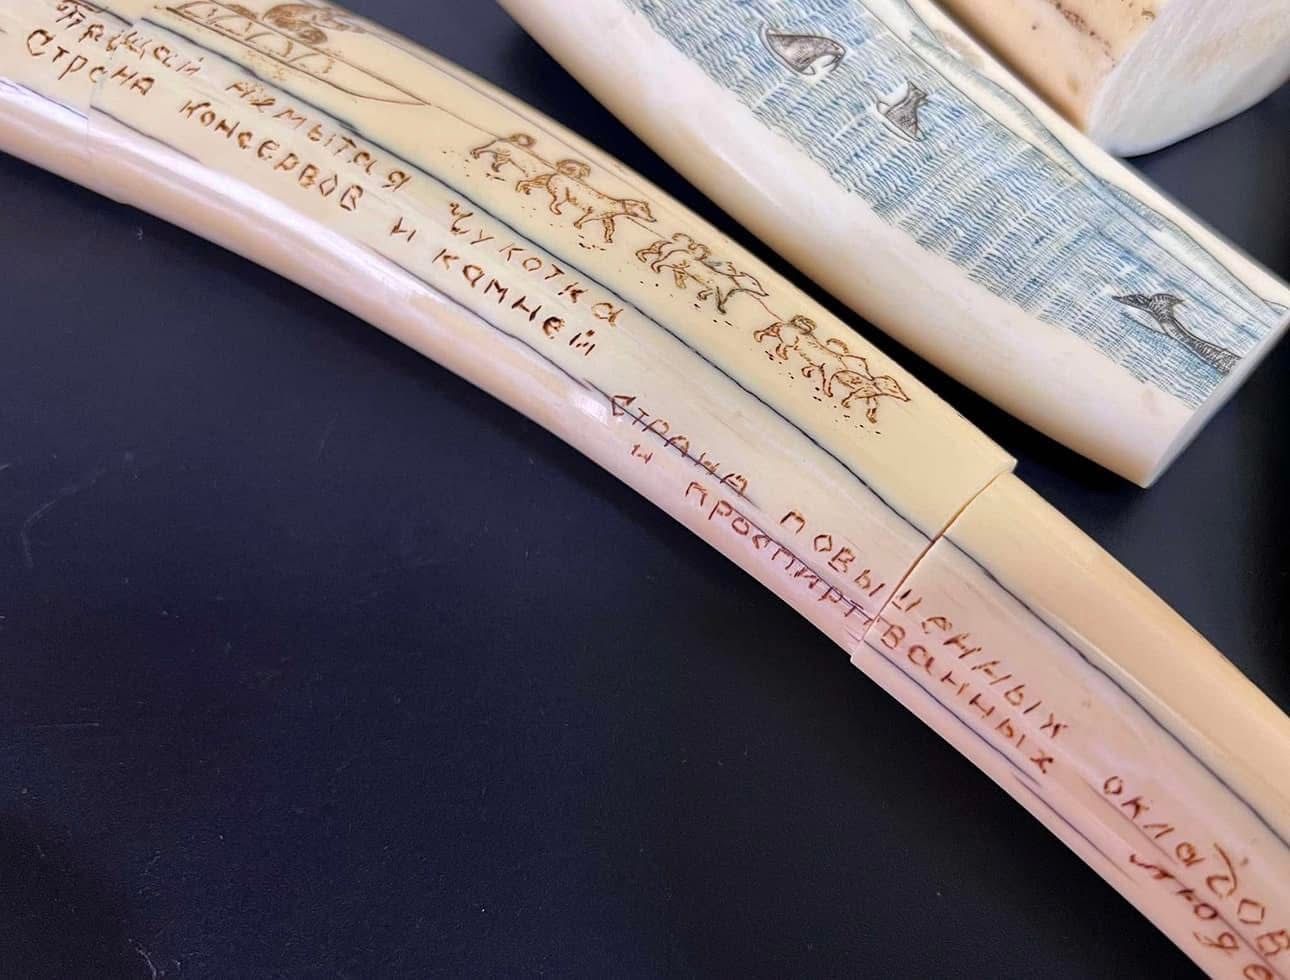 Прощай немытая Чукотка
Страна консервов и камней
Страна повышенных окладов
и проспиртованных людей